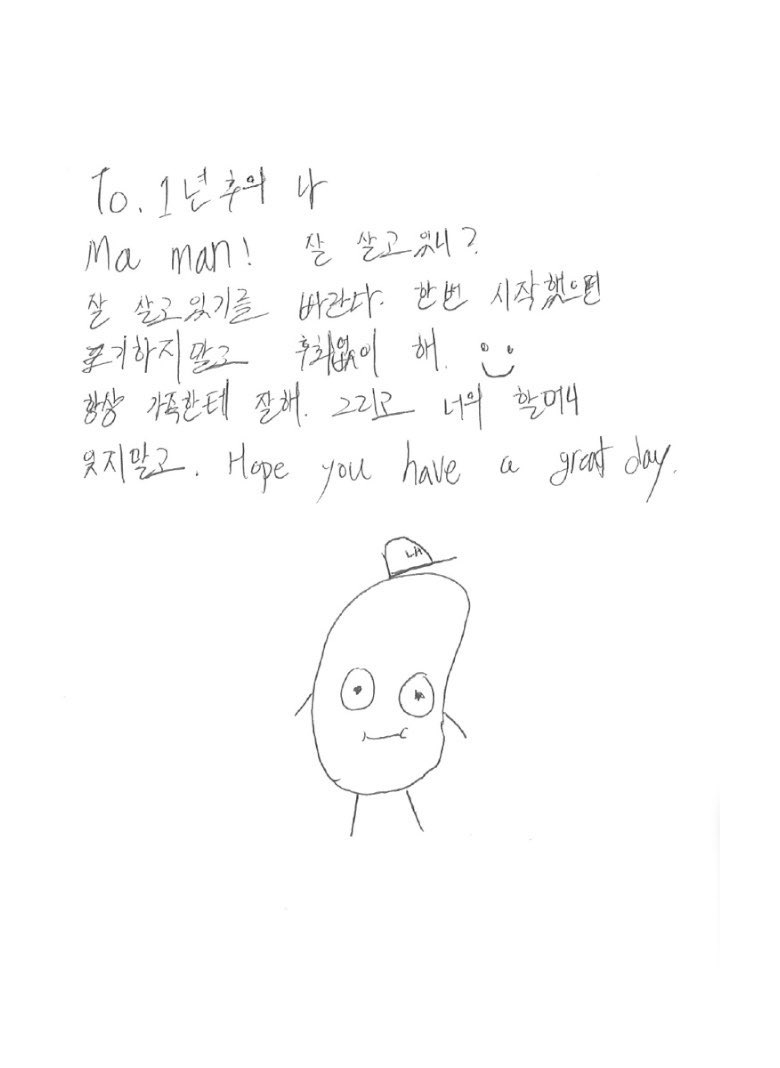 To. 1년 후의 나
Ma man! 잘 살고 있니?
잘 살고 있기를 바란다. 한번 시작했으면
포기하지말고 후회없이 해.
항상 가족한테 잘해. 그리고 너의 할머니
잊지말고. Hope you have a great day.
LA